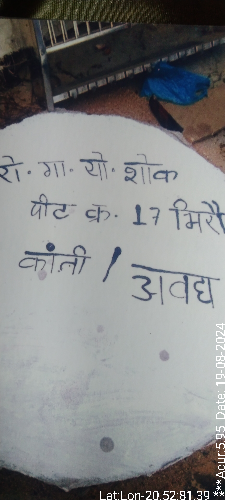 रो. गा. यो. शोक
पीट क्र. 17 मिरौ
कांती / अवध
Lat:Lon-20.52:81.39
***Acur:5.95 Date: 19-08-2024